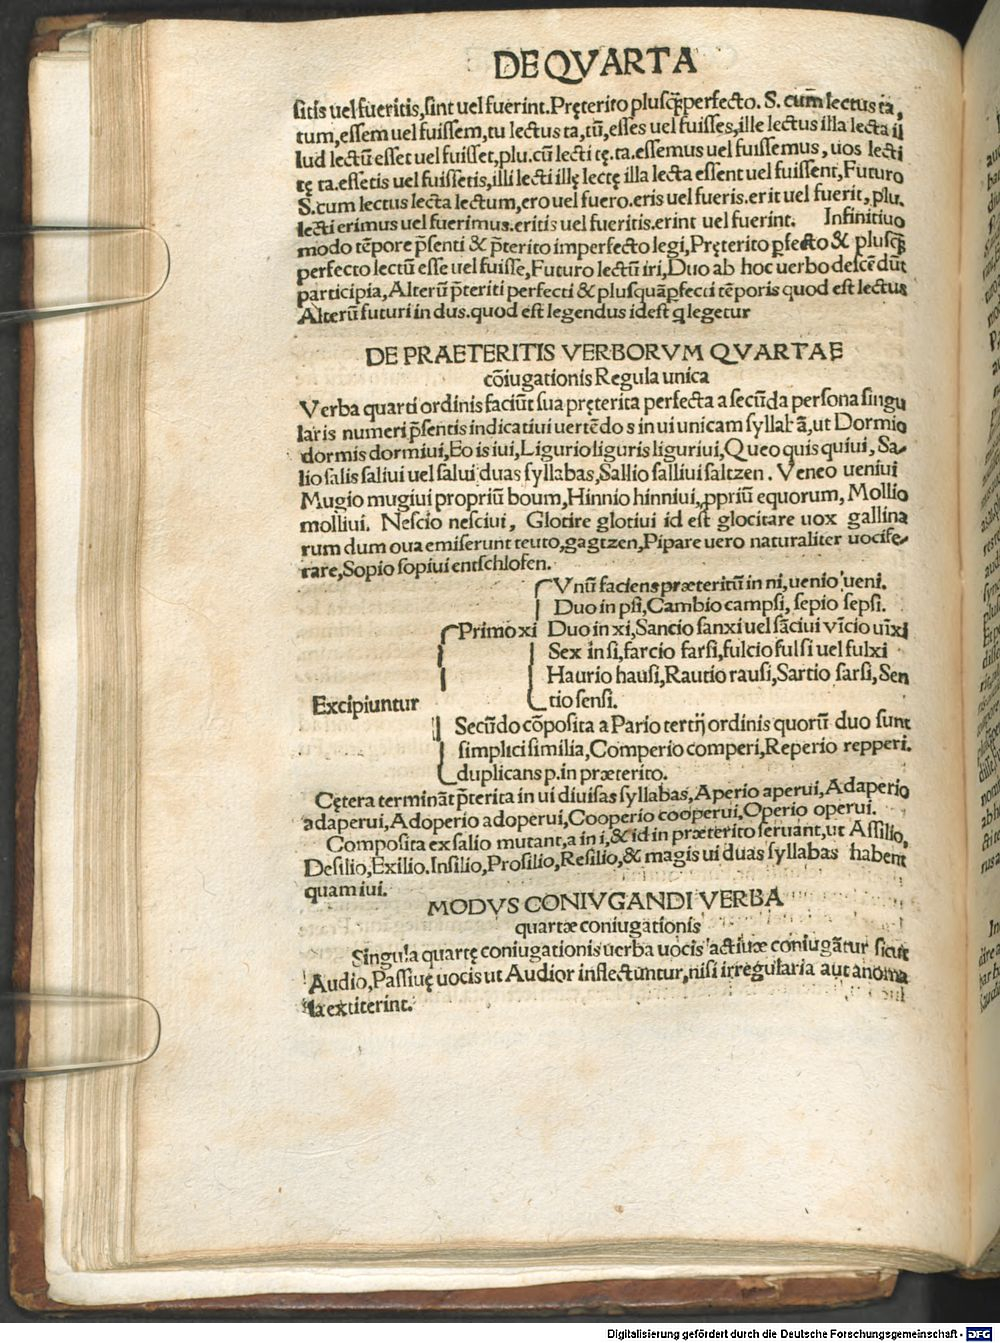 DE QVARTA
ſitis uel fueritis, ſint uel fuerint. Pręterito pluſq̃perfecto. S. cum lectus ta,
tum, eſſem uel fuiſſem, tu lectus ta, tũ, eſſes uel fuiſſes, ille lectus illa lecta il
lud lectũ eſſet uel fuiſſet, plu. cũ lecti tę. ta. eſſemus uel fuiſſemus, uos lecti
tę ta. eſſetis uel fuiſſetis, illi lecti illę lectę illa lecta eſſent uel fuiſſent, Futuro
S. cum lectus lecta lectum, ero uel fuero. eris uel fueris. erit uel fuerit, plu.
lecti erimus uel fuerimus. eritis uel fueritis. erint uel fuerint. Infinitiuo
modo tẽpore p̃ſenti & p̃terito imperfecto legi, Pręterito ꝑfecto & pluſq̃
perfecto lectũ eſſe uel fuiſſe, Futuro lectũ iri, Duo ab hoc uerbo deſcẽdũt
participia, Alterũ p̃teriti perfecti & pluſquãꝑfecti tẽporis quod eſt lectus
Alterũ futuri in dus. quod eſt legendus ideſt q legetur
DE PRAETERITIS VERBORVM QVARTAE
cõiugationis Regula unica
Verba quarti ordinis faciũt ſua pręterita perfecta a ſecũda perſona ſingu
laris numeri p̃ſentis indicatiui uertẽdo s in ui unicam ſyllabã, ut Dormio
dormis dormiui, Eo is iui, Ligurio liguris liguriui, Queo quis quiui, Sa-
lio ſalis ſaliui uel ſalui duas ſyllabas, Sallio ſalliui ſaltzen. Veneo ueniui
Mugio mugiui propriũ boum, Hinnio hinniui, ꝓpriũ equorum, Mollio
molliui. Neſcio neſciui, Glotire glotiui id eſt glocitare uox gallina
rum dum oua emiſerunt teuto, gagtzen, Pipare uero naturaliter uocife-
rare, Sopio ſopiui entſchlofen.
Vnũ faciens præteritũ in ni, uenio ueni.
Duo in pſi, Cambio campſi, ſepio ſepſi.
Primo xi Duo in xi, Sancio ſanxi uel ſãciui vĩcio uĩxi
Sex in ſi, farcio farſi, fulcio fulſi uel fulxi
Haurio hauſi, Rautio rauſi, Sartio ſarſi, Sen
tio ſenſi.
Excipiuntur
Secũdo cõpoſita a Pario tertij ordinis quorũ duo ſunt
ſimplici ſimilia, Comperio comperi, Reperio repperi.
duplicans p. in præterito.
Cętera terminãt p̃terita in ui diuiſas ſyllabas, Aperio aperui, Adaperio
adaperui, Adoperio adoperui, Cooperio cooperui, Operio operui.
Compoſita ex ſalio mutant, a in i, & id in præterito ſeruant, ut Aſſilio,
Deſilio, Exilio. Inſilio, Proſilio, Reſilio, & magis ui duas ſyllabas habent
quam iui.
MODVS CONIVGANDI VERBA
quartæ coniugationis
Singula quartę coniugationis uerba uocis actiuæ coniugãtur ſicut
Audio, Paſſiuę uocis ut Audior inflectuntur, niſi irregularia aut anoma
la extiterint.
Digitalisierung gefördert durch die Deutsche Forschungsgemeinschaft - DFG